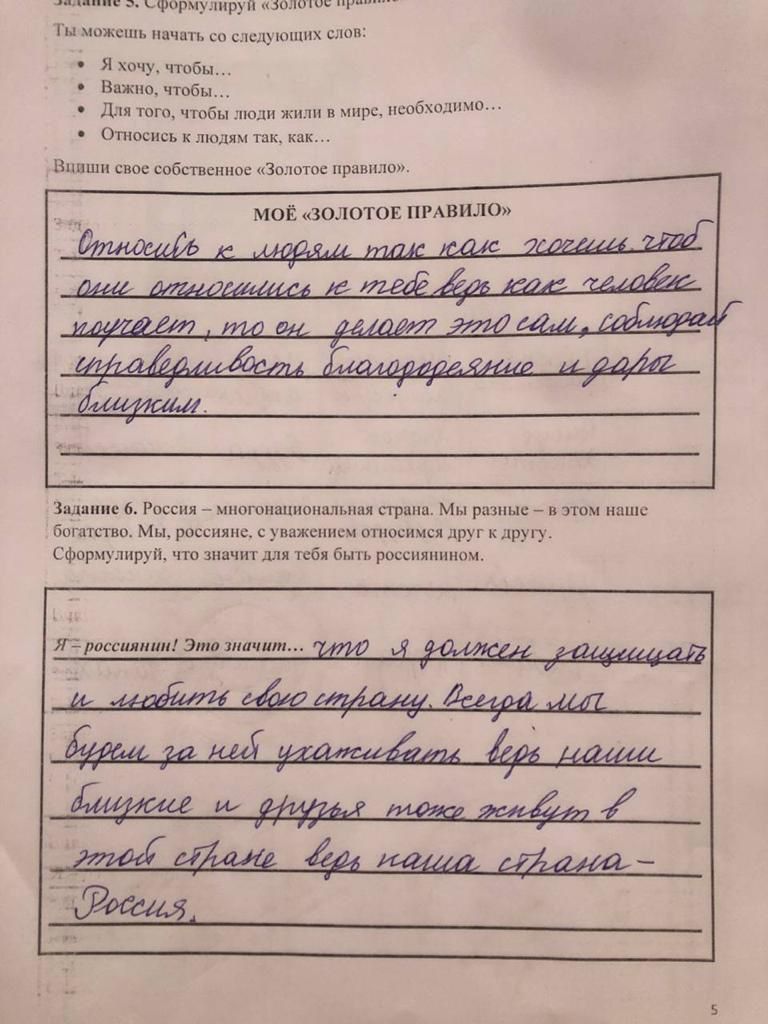 Задание 5. Сформулируй «Золотое правило
Ты можешь начать со следующих слов:
• Я хочу, чтобы…
• Важно, чтобы…
• Для того, чтобы люди жили в мире, необходимо…
• Относись к людям так, как…
Впиши свое собственное «Золотое правило».
МОЁ «ЗОЛОТОЕ ПРАВИЛО»
Относись к людям так как хочешь чтоб
они относились к тебе ведь как человек
поучает, то он делает это сам, соблюдает
справедливость благододеяние и дары
близким.
Задание 6. Россия – многонациональная страна. Мы разные – в этом наше
богатство. Мы, россияне, с уважением относимся друг к другу.
Сформулируй, что значит для тебя быть россиянином.
Я – россиянин! Это значит… что я должен защищать
и любить свою страну. Всегда мы
будем за ней ухаживать ведь наши
близкие и друзья тоже живут в
этой стране ведь наша страна –
Россия.
5